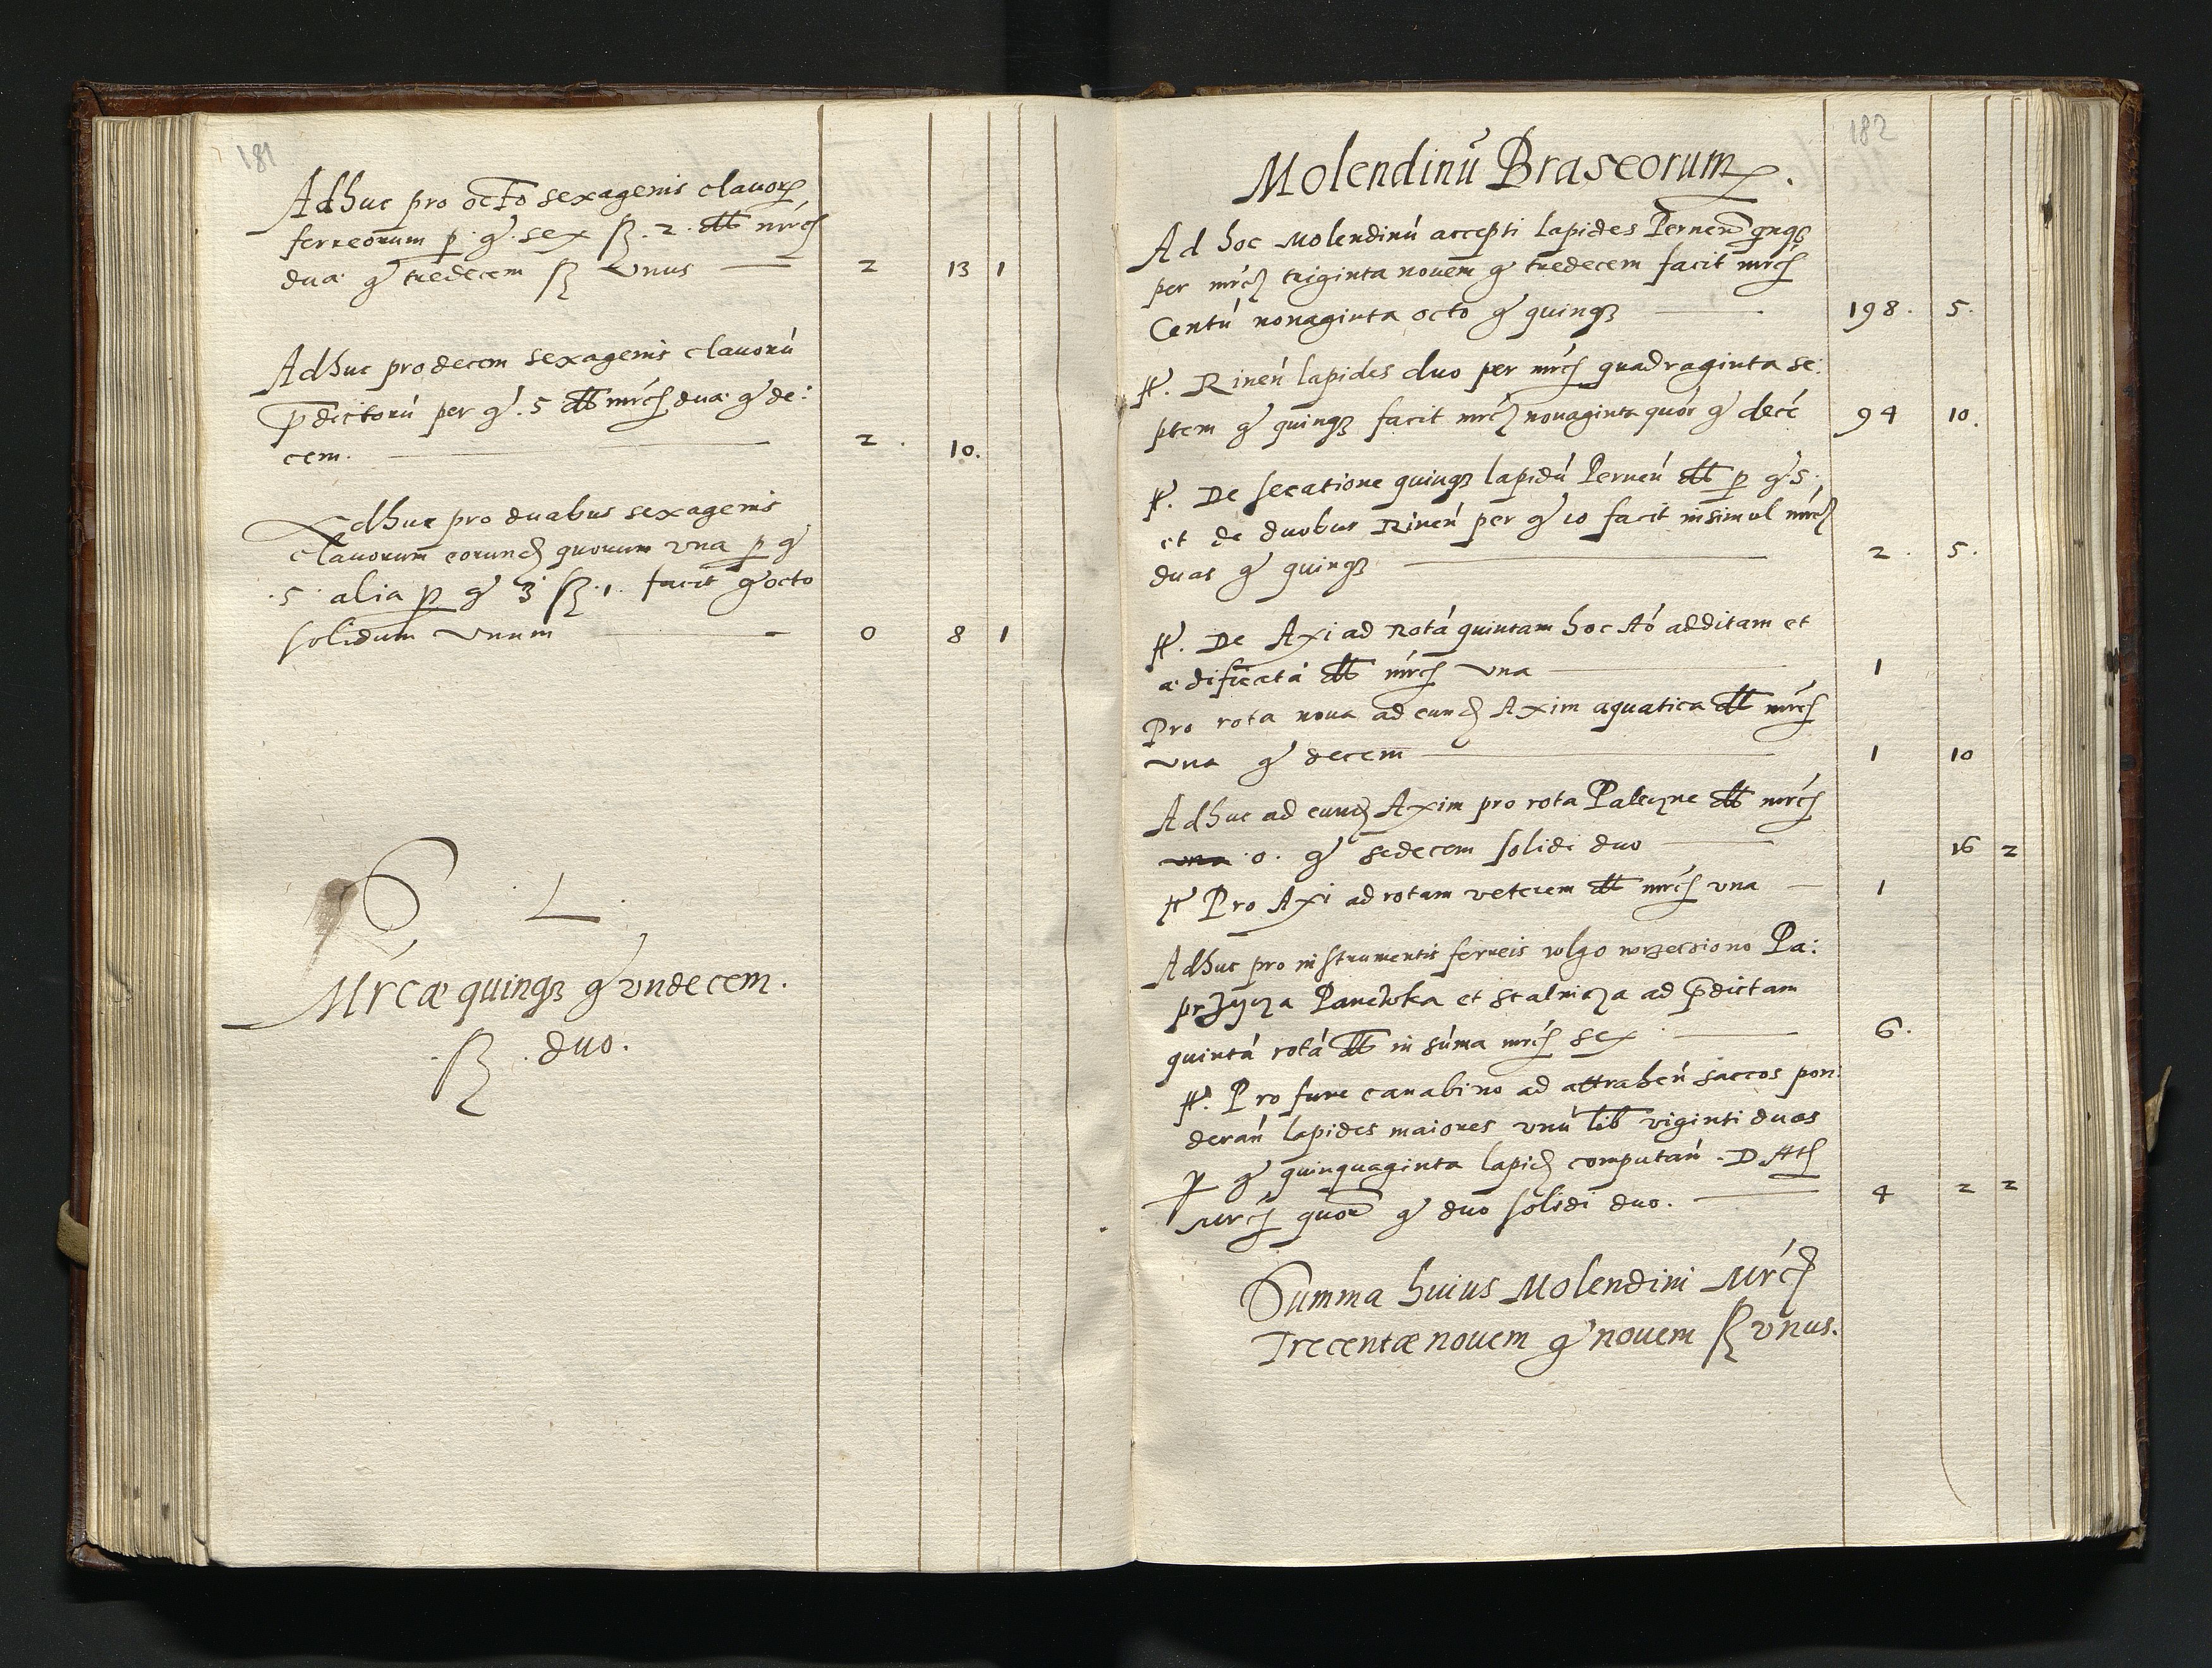 181
Adhuc pro octo sexagenis clauorꝫ
ferreorum p. gͬ. sex ß. 2. dtt mrcꝭ
duaͤ gͬ tredecem ß Vnus — 2 13 1
Adhuc pro decem sexagenis clauorū
p̄dictorū per gͬ. 5 dtt mrcꝭ duaͤ gͬ de:
cem. — 2. 10.
Adhuc pro duabus sexagenis
Clauorum eorundꝭ quorum vna p gͬ
.5. alia p gͬ 3 ß .1. facit gͬ octo
solidum Vnum — 0 8 1
L.
Mrcæ quinqꝫ gͬ vndecem.
.ß. duo.
182
Molendinū Braseorum.
Ad hoc Molendinū accepti lapides Pernen̄ qnqꝫ
per mrcꝭ triginta nouem gͬ tredecem facit mrcꝭ
Centū nonaginta octo gͬ quinqꝫ — 198. 5.
It. Rinen̄ lapides duo per mrcꝭ quadraginta se:
ptem gͬ quinqꝫ facit mrcꝭ nonaginta quor gͬ decē 94 10.
It. De secatione quinqꝫ lapidū Pernen̄ dtt p gͬ 5.
et de duobus Rinen̄ per gͬ 10 facit insimul mrcꝭ
duas gͬ quinqꝫ — 2. 5.
It. De Axi ad Rotā quintam hoc Aō additam et
ædificatā dtt mrcꝭ vna — 1
Pro rota noua ad eundꝭ Axim aquatica dtt mrcꝭ
vna gͬ decem — 1 10
Adhuc ad eundꝭ Axim pro rota Paleczne dtt mrcꝭ
vna .0. gͬ sedecem solidi duo — 16 2
It Pro Axi ad rotam veterem dtt mrcꝭ vna — 1
Adhuc pro instrumentis ferreis vulgo wrzecziono Pa:
przycza Panewka et Stalnicza ad p̄dictam
quintā rotā dtt in sūma mrcꝭ sex — 6.
It. Pro fune canabino ad attrahen̄ saccos pon:
deran̄ lapides maiores vnū lib viginti duas
p gͬ quinquaginta lapidꝭ computan̄.
Mrcꝭ quor gͬ duo solidi duo. — 4 2 2
Summa huius Molendini Mrcꝭ
Trecentæ nouem gͬ nouem ß vnus.